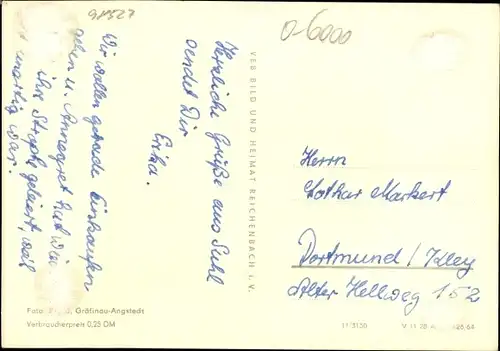 98527
0-6000
Herzliche Grüße aus Suhl
sendet Dir
Erika.
Wir wollen gerade Einkaufen
gehen u. Annegret hat
ihre Strophe geleiert, weil
war.
VEB BILD UND HEIMAT REICHENBACH i. V.
Herrn
Lothar Markert
Dortmund / Kley
Alter Hellweg 152
Foto: Gräfinau-Angstedt
Verbraucherpreis 0,25 DM